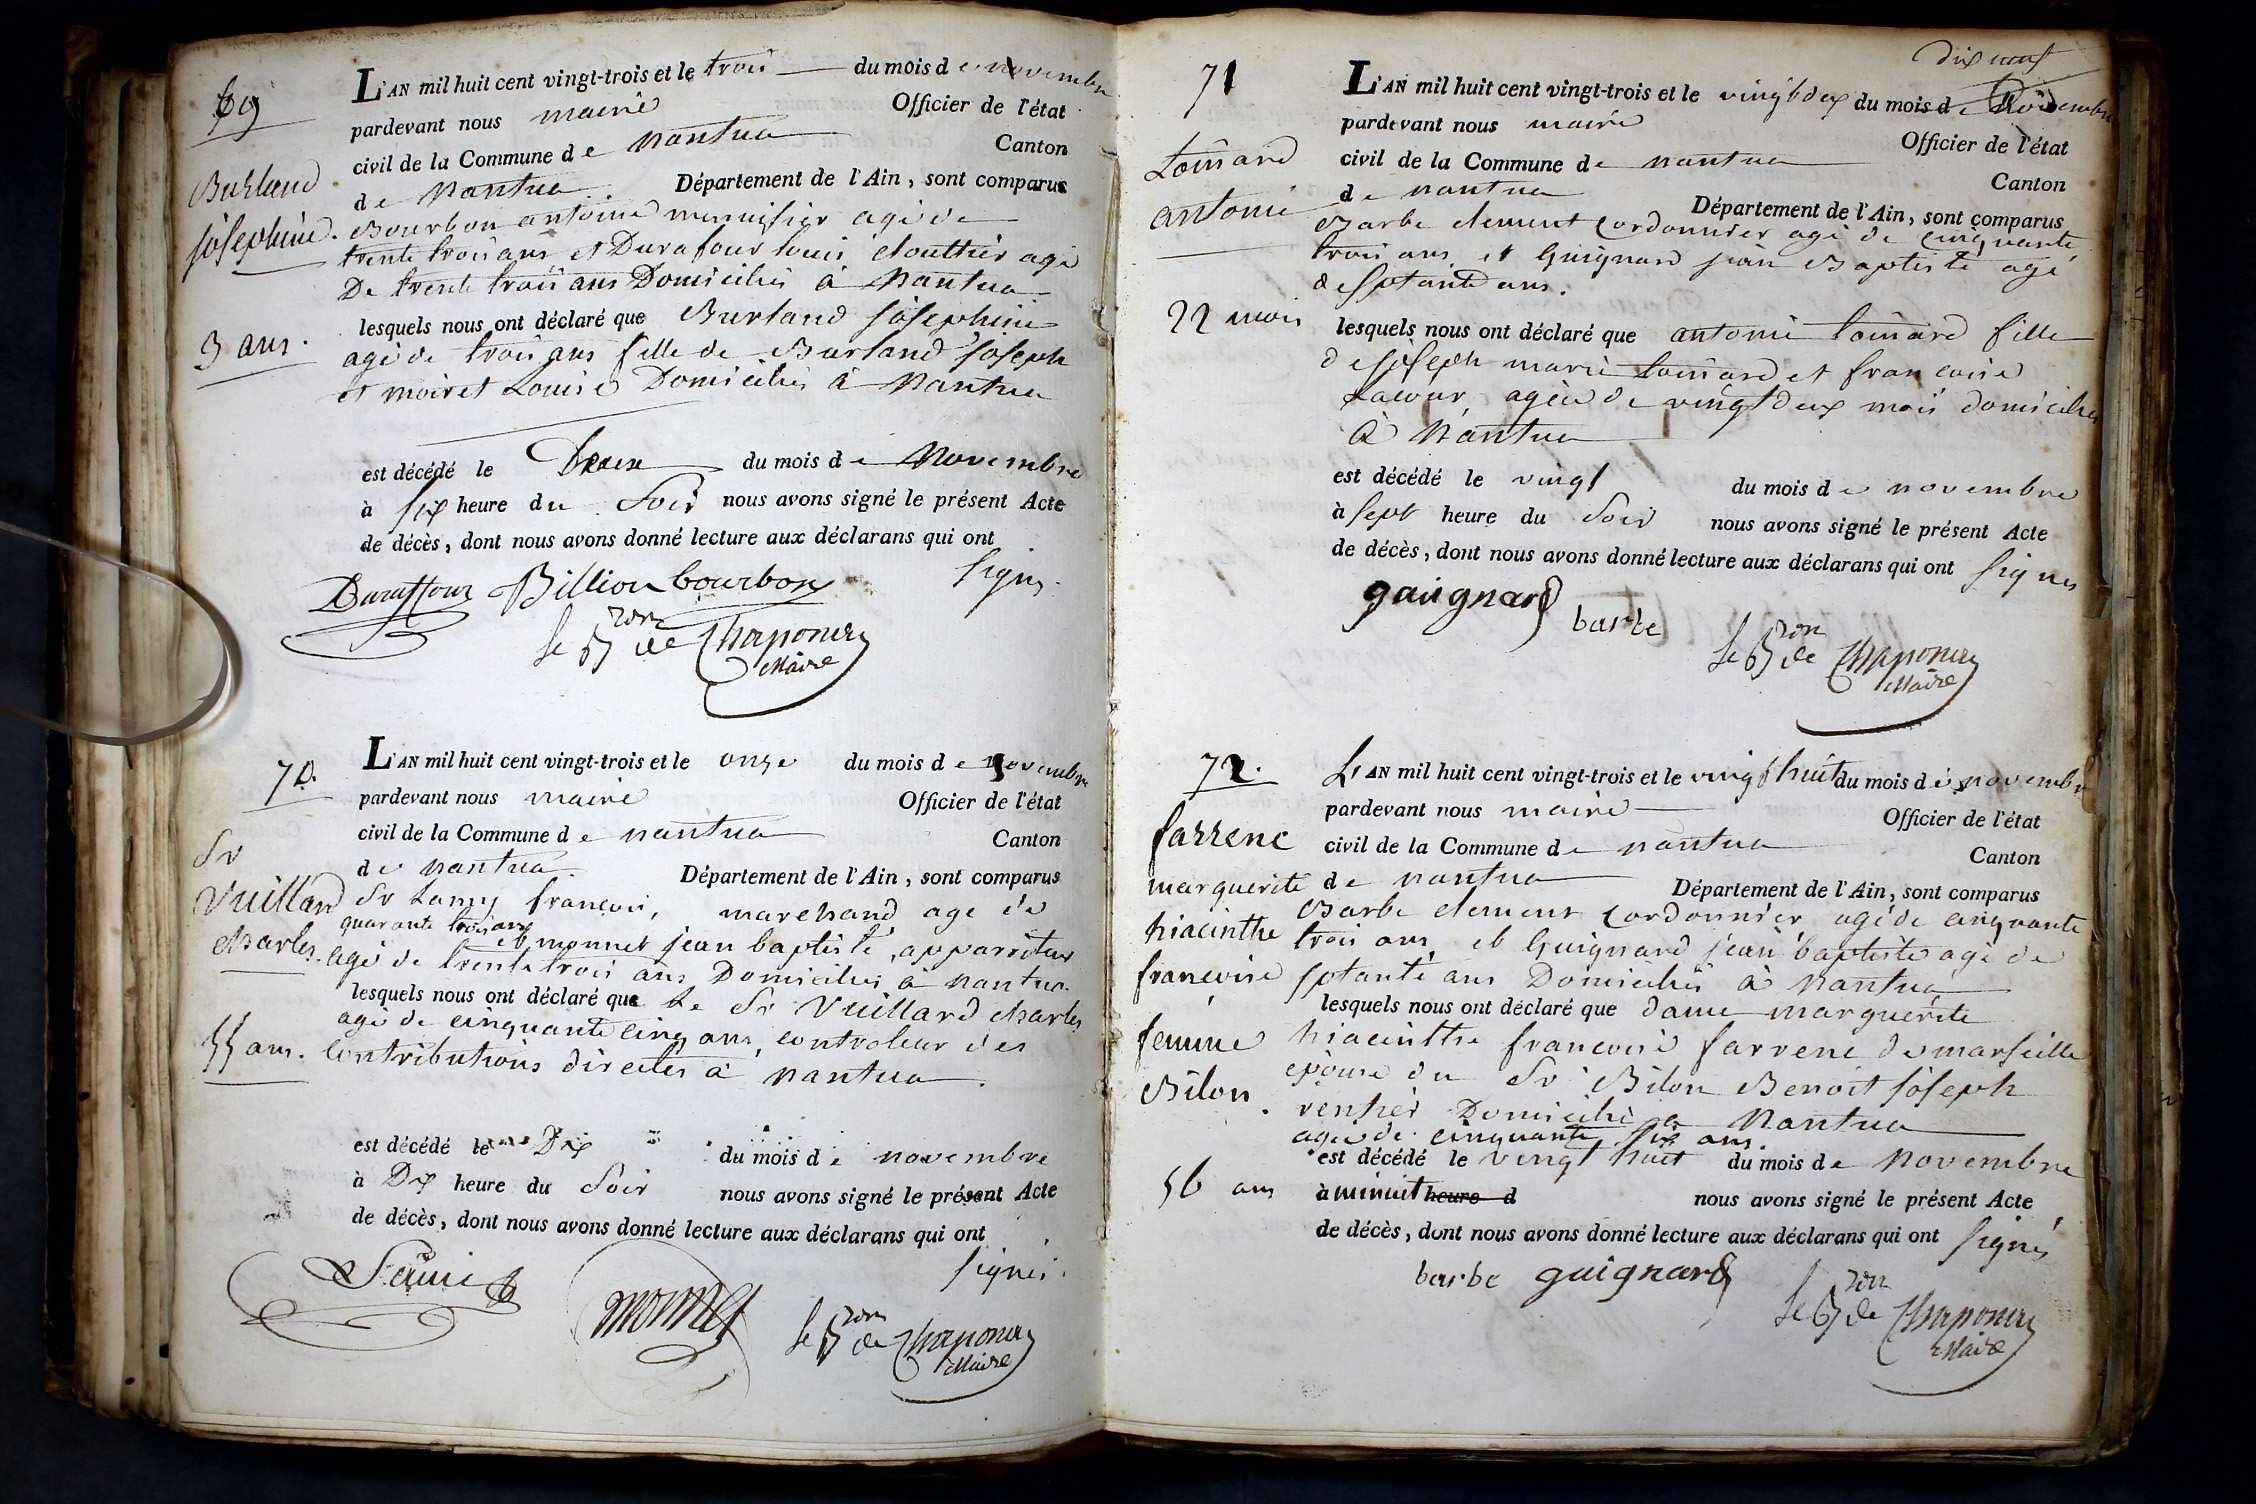 69
Burland
joséphine.
3 ans.
L'AN mil huit cent vingt-trois et le trois du mois de novembre
pardevant nous maire Officier de l'état
civil de la Commune de nantua Canton
de Nantua. Département de l'Ain, sont comparus
Bourbon antoine menuisier agé de
trente trois ans et Durafour louis cloutier agé
De trente trois ans Domiciliés à Nantua
lesquels nous ont déclaré que Burland joséphine
agé de trois ans fille de Burland joseph
et moiret Louise Domiciliés à Nantua
est décédé le Deux du mois de Novembre
à six heure du Soir nous avons signé le présent Acte
de décès, dont nous avons donné lecture aux déclarans qui ont
signés.
Duraffour Billion bourbon
le Bron de Chaponay
Maire
70.
Sr
Vuillard
charles.
55 ans.
L'AN mil huit cent vingt-trois et le onze du mois de novembre
pardevant nous maire Officier de l'état
civil de la Commune de nantua Canton
de nantua. Département de l'Ain, sont comparus
Sr Lamy françois, marchand agé de
quarante trois ans
et monnet jean baptiste, apparriteur
agé de trente trois ans Domiciliés à nantua.
lesquels nous ont déclaré que Le Sr Vuillard charles
agé de cinquante cinq ans, controleur des
Contributions directes à nantua.
est décédé le Dix du mois de novembre
à Dix heure du Soir nous avons signé le présent Acte
de décès, dont nous avons donné lecture aux déclarans qui ont
signés.
monnet
le Bron de Chaponay
Maire
dix neuf
71
Loinard
antonie
22 mois
L'AN mil huit cent vingt-trois et le vingt deux du mois de Novembre
pardevant nous maire Officier de l'état
civil de la Commune de nantua Canton
de nantua Département de l'Ain, sont comparus
Barbe clement Cordonnier agé de cinquante
trois ans et Guignard jean Baptiste agé
de sptante ans.
lesquels nous ont déclaré que antonie loinard fille
de joseph marie loinard et francoise
Lacour, agée de vingt deux mois domiciliés
à Nantua
est décédé le vingt du mois de novembre
à sept heure du Soir nous avons signé le présent Acte
de décès, dont nous avons donné lecture aux déclarans qui ont signés
guignard barbe
le Bron de Chaponay
Maire
72.
farrene
marguerite
hiacinthe
francoise
femme
Bilon.
56 ans
L'AN mil huit cent vingt-trois et le vingt huit du mois de novembre
pardevant nous maire Officier de l'état
civil de la Commune de nantua Canton
de nantua Département de l'Ain, sont comparus
Barbe clement Cordonnier, agé de cinquante
trois ans et Guignard jean baptiste agé de
sptante ans Domiciliés à Nantua
lesquels nous ont déclaré que dame marguerite
hiacinthe francoise farrene de marseille
epouse du Sr Bilon Benoit joseph
rentier Domicilié a Nantua
agée de cinquante six ans.
est décédé le vingt huit du mois de Novembre
à minuit heure d nous avons signé le présent Acte
de décès, dont nous avons donné lecture aux déclarans qui ont signés
barbe guignard
le Bron de Chaponay
Maire